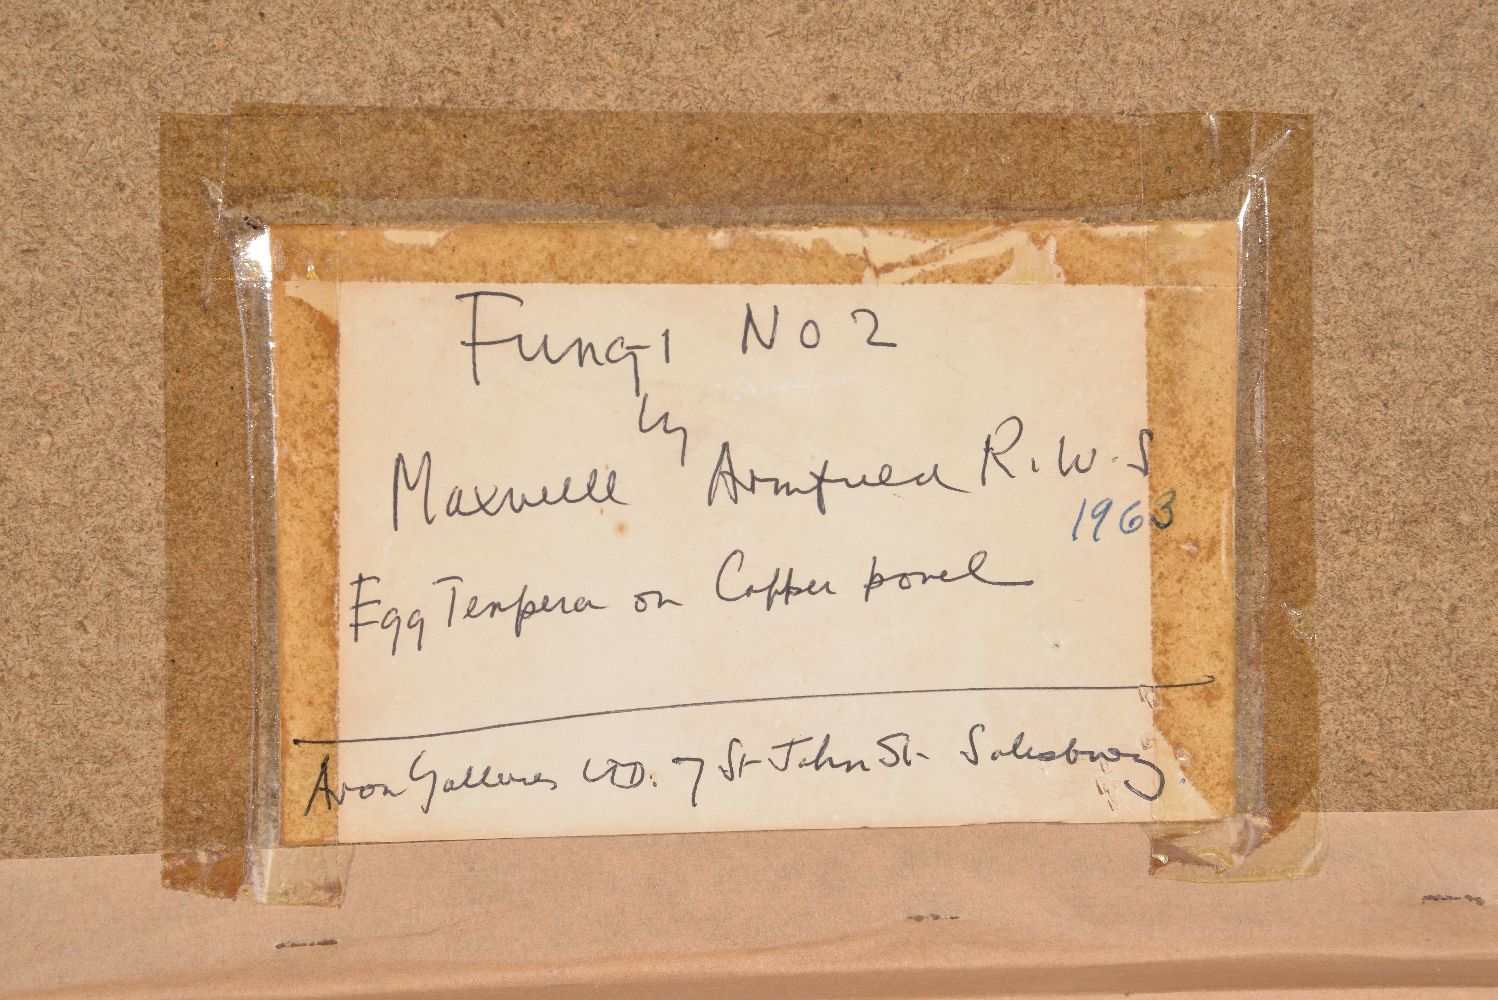 Fungi No 2
by
Maxwell Armfield R.W.S
1963
Egg Tempera on Copper panel
Avon Galleries LTD. 7 St John St. Salisbury.